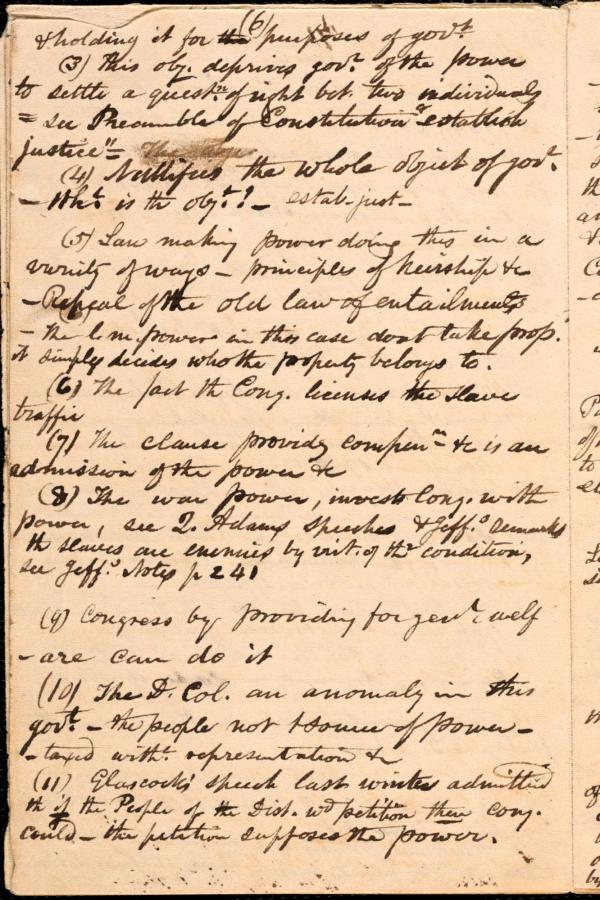 (6)
& holding it for the purposes of govt.
(3) This obj. deprives govt. of the power
to settle a questn. of right bet. two individuals
= see Preamble of Constitution "establish
justice" =
(4) Nullifies the whole object of govt.
- Wht. is th objt.? - estab. just -
(5) Law making power doing this in a
variety of ways - principles of heirship &c
- Repeal of the old law of entailments
- The l. m. power in this case dont take prop.
it simply decides who the property belongs to.
(6) The fact th Cong. licenses the slave
traffic
(7) The clause providg compenn. &c is an
admission of the power &c
(8) The war power, invests Cong. with
power, see Q. Adams speeches & Jeff.s remarks
th slaves are enemies by virt. of thr condition,
see Jeff.s Notes p 241
(9) Congress by providing for genl. welf
-are can do it
(10) The D. Col. an anomaly in this
govt. - the people not source of power -
- taxed witht. representation &c
(11) Glascock's speech last winter admitted
th if the People of the Dist. wd petition then cong.
could - the petition supposes the power.